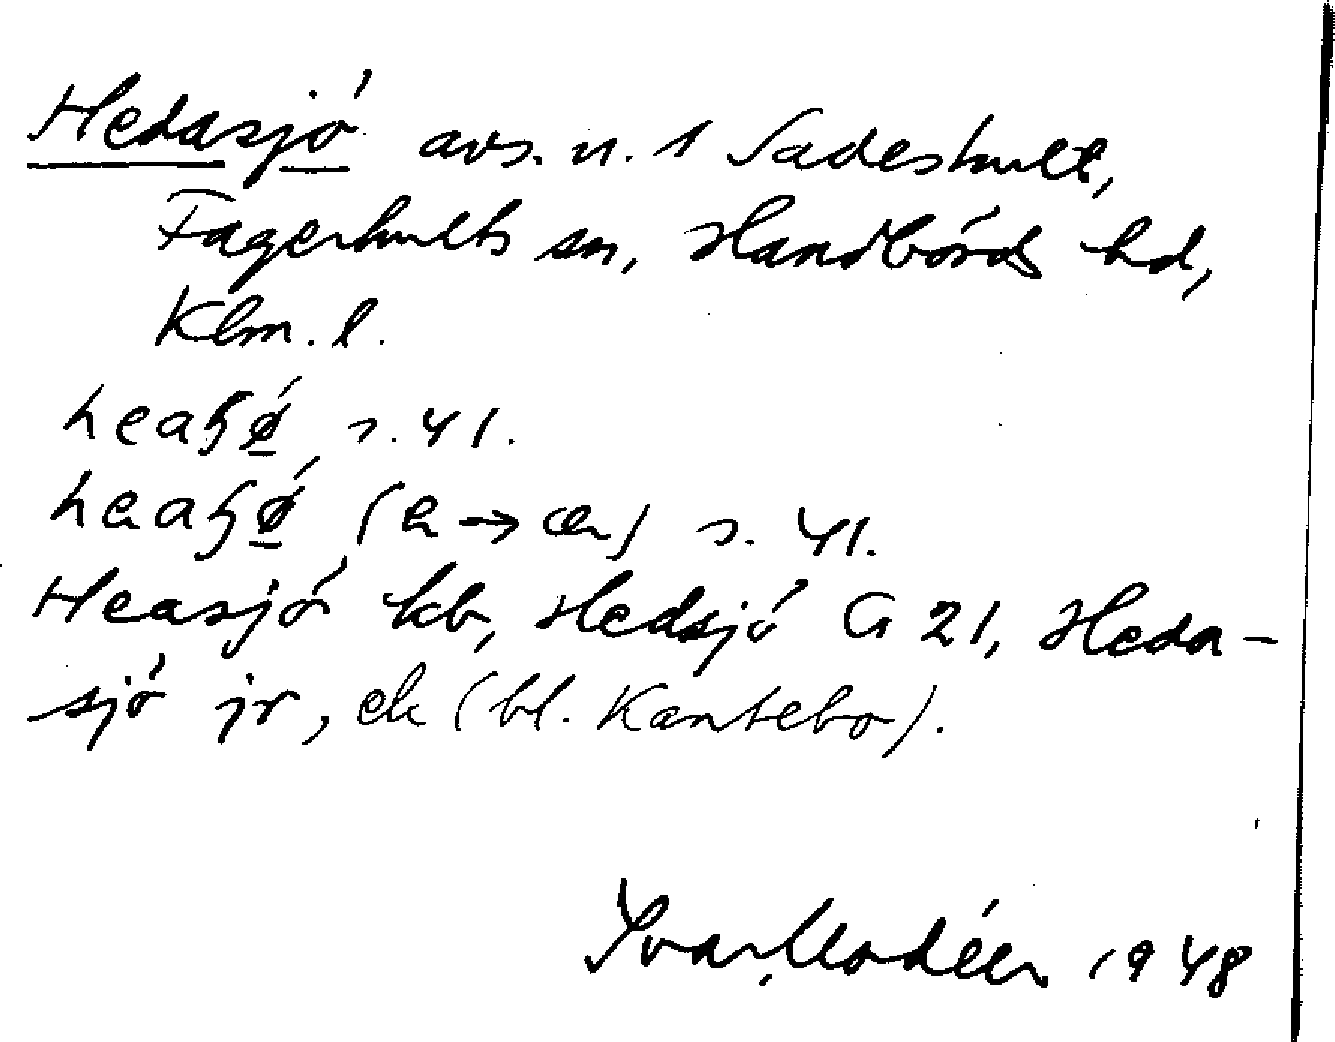 Hedasjö avs. n. 1 Sadeshult,
Fagerhults sn, Handbörds hd,
Klm. l.
s. 41.
s. 41.
Heasjö kb, Hedsjö G 21, Heda-
sjö jr, ek (bl. Kantebo).
Ivar Modéer 1948